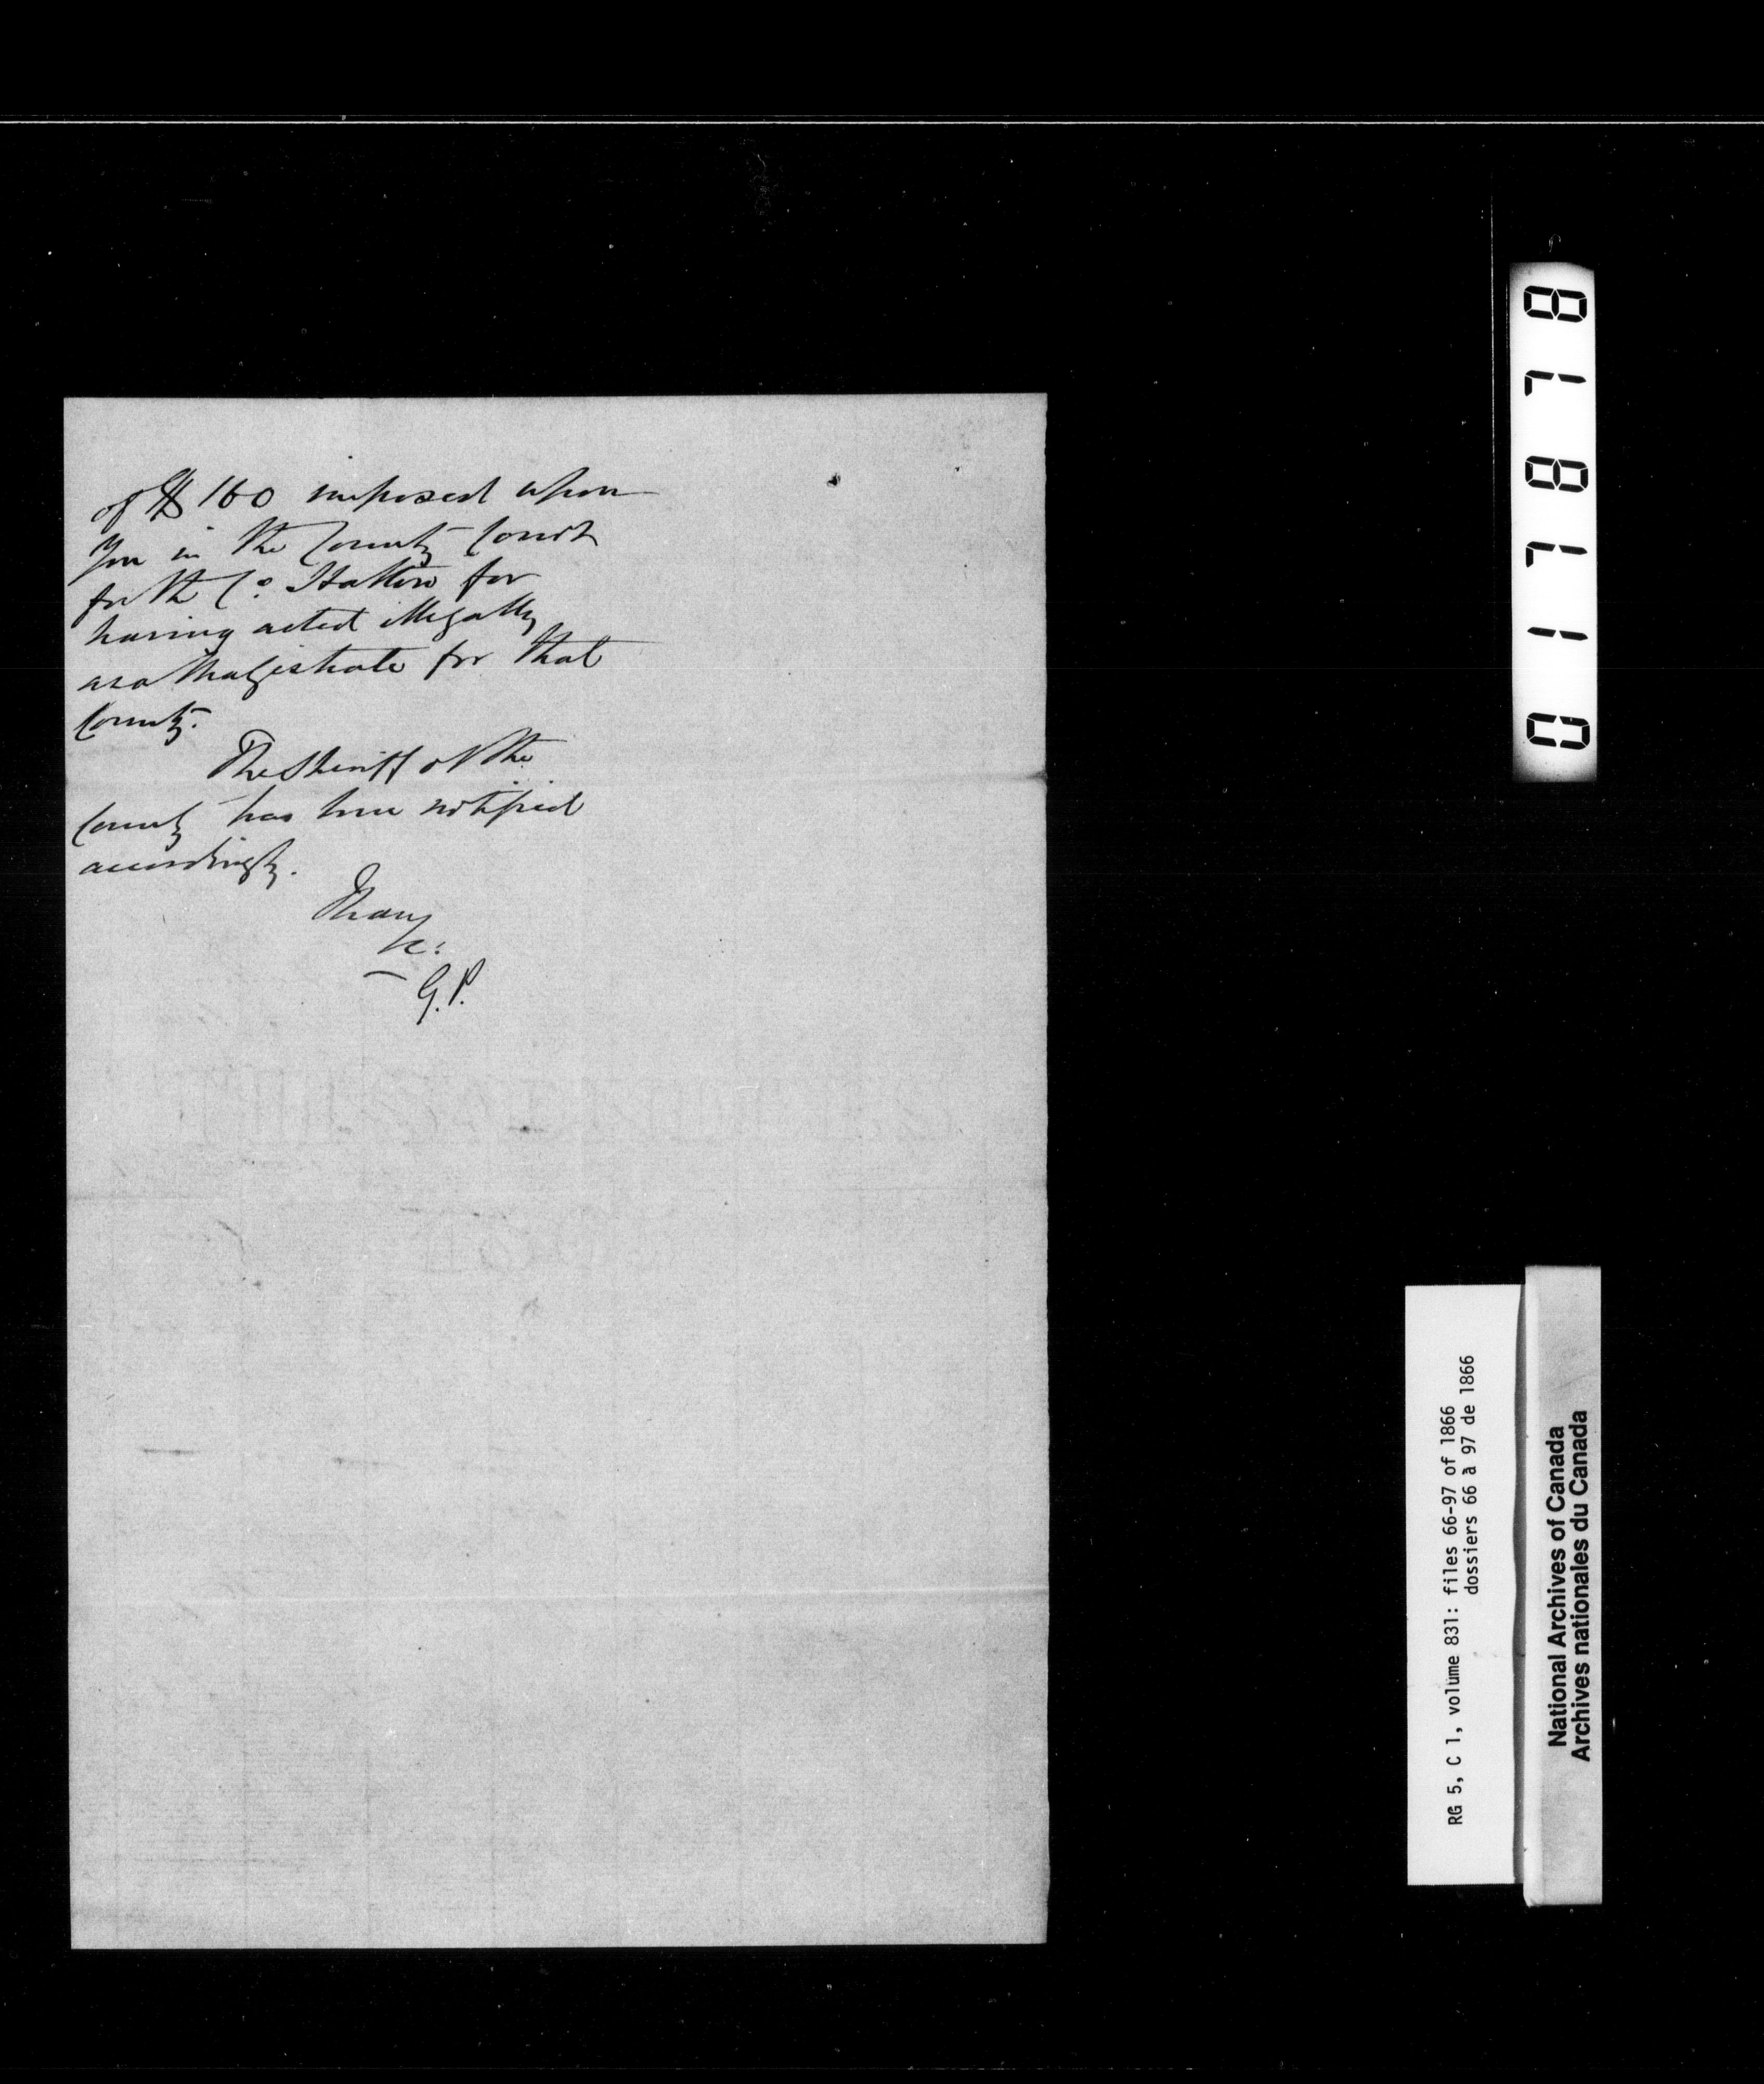 of $ 160 imposed upon
you in the County Court
for the Co. Halton for
having acted illegally
as a Magistrate for that
County.
The Sheriff of the
County has been notified
accordingly.
I have
&c:
G.P.
017878
RG 5, C 1, volume 831: files 66-97 of 1866
dossiers 66 à 97 de 1866
National Archives of Canada
Archives nationales du Canada